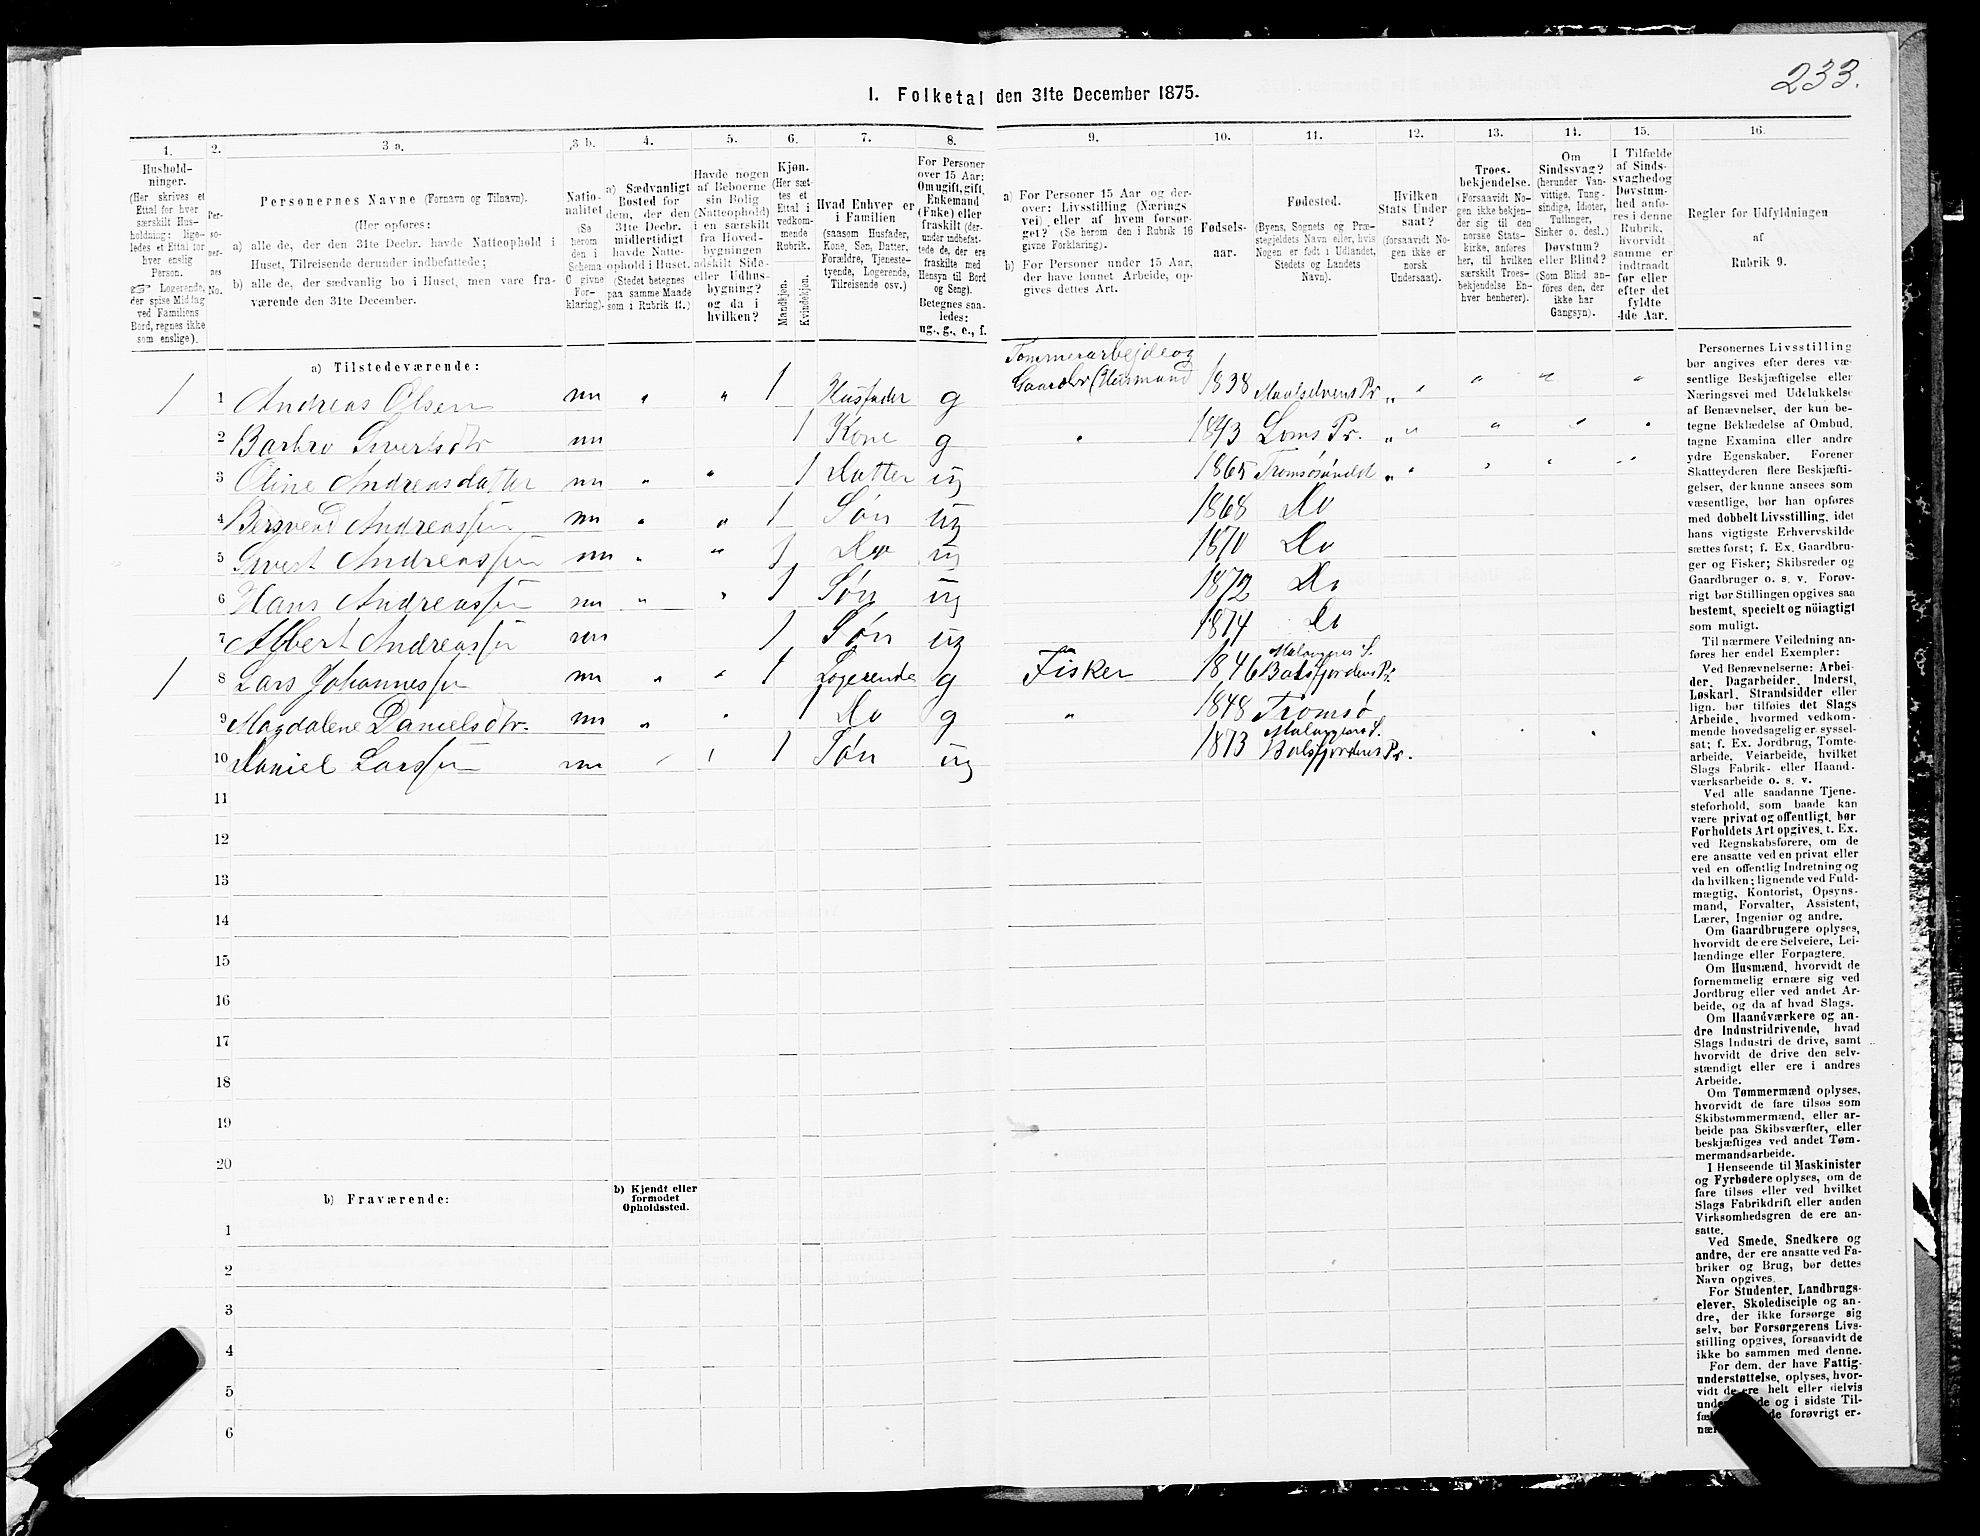 233.
I. Folketal den 31te December 1875.
1. 2. 3 a. 3 b. 4. 5. 6. 7. 8. 9. 10. 11. 12. 13. 14. 15. 16.
Husholdninger.
(Her skrives et
Ettal for hver
særskilt Husholdning;
ligeledes et Ettal for
hver enslig
Person.
☞ Logerende,
der spise Middag
ved Familiens
Bord, regnes ikke
som enslige).
Personernes No.
Personernes Navne (Fornavn og Tilnavn).
(Her opføres:
a) alle de, der den 31te Decbr. havde Natteophold i
Huset, Tilreisende derunder indbefattede;
b) alle de, der sædvanlig bo i Huset, men vare fraværende den 31te December.
Nationalitet
(Se
herom
den i
Schema
C givne
Forklaring).
a) Sædvanligt
Bosted for
dem, der den
31te Decbr.
midlertidigt
havde Natteophold i Huset.
(Stedet betegnes
paa samme Maade
som i Rubrik 11.)
Havde nogen
af Beboerne
sin Bolig
(Natteophold)
i en særskilt
fra Hovedbygningen
adskilt Side- eller Udhusbygning?
og da i
hvilken?
Kjøn.
(Her sættes et
Ettal i
vedkommende
Rubrik.
Mandkjøn.
Kvindekjøn.
Hvad Enhver er
i Familien
(saasom Husfader,
Kone, Søn, Datter,
Forældre, Tjenestetyende, Logerende,
Tilreisende osv.)
For Personer
over 15 Aar:
Om ugift, gift,
Enkemand
(Enke) eller
fraskilt (derunder indbefattede, de, der ere
fraskilte med
Hensyn til Bord
og Seng).
Betegnes saaledes:
ug., g., e., f.
a) For Personer 15 Aar og derover: Livsstilling (Næringsvei) eller af hvem forsørget? (Se herom de i Rubrik 16
givne Forklaring).
b) For Personer under 15 Aar,
der have lønnet Arbeide, opgives dettes Art.
Fødselsaar.
Fødested.
(Byens, Sognets og Præstegjeldets Navn eller, hvis
Nogen er født i Udlandet,
Stedets og Landets
Navn).
Hvilken
Stats Undersaat?
(forsaavidt Nogen ikke er
norsk
Undersaat).
Troesbekjendelse.
(Forsaavidt Nogen ikke bekjender sig til den
norske Statskirke, anføres
her, til hvilken
særskilt Troesbekjendelse Enhver henhører).
Om
Sindssvag?
(herunder Vanvittige, Tungsindige, Idioter,
Tullinger,
Sinker o. desl.)
Døvstum?
eller Blind?
(Som Blind anføres den, der
ikke har
Gangsyn).
I Tilfælde
af Sindssvaghed og
Døvstumhed anføres i denne
Rubrik,
hvorvidt
samme er
indtraadt
før eller
efter det
fyldte
4de Aar.
Regler for Udfyldningen
af
Rubrik 9.
a) Tilstedeværende:
1 1 Andreas Olsen nn „ „ 1 Husfader g Tømmerarbejde og Gaardbr (Husmand 1838 Maalselvens Pr. „ „ „ „ „
2 Barbro Sivertsdtr nn 1 Kone g „ 1843 Loms Pr. „ „ „ „ „
3 Oline Andreasdatter nn „ „ 1 Datter ug 1865 Tromsøsundet „ „ „ „ „
4 Bersvend Andreassen nn „ „ 1 Søn ug 1868 Do
5 Sivert Andreassen nn „ „ 1 Do ug 1870 Do
6 Hans Andreassen nn „ „ 1 Søn ug 1872 Do
7 Albert Andreassen nn 1 Søn ug 1874 Do
1 8 Lars Johannessen nn „ „ 1 Logerende g Fisker 1846 Malangens S. Balsfjordens Pr.
9 Magdalene Danielsdtr. nn „ „ 1 Do g „ 1848 Tromsø
10 Daniel Larssen nn 1 Søn ug 1873 Malangens S. Balsfjordens Pr.
11
12
13
14
15
16
17
18
19
20
b) Fraværende:
b) Kjendt eller
formodet
Opholdssted.
1
2
3
4
5
6
Personernes Livsstilling
bør angives efter deres væsentlige Beskjæftigelse eller
Næringsvei med Udelukkelse
af Benævnelser, der kun betegne Beklædelse af Ombud,
tagne Examina eller andre
ydre Egenskaber. Forener
Skatteyderen flere Beskjæftigelser, der kunne ansees som
væsentlige, bør han opføres
med dobbelt Livsstilling, idet
hans vigtigste Erhvervskilde
sættes først; f. Ex. Gaardbruger og Fisker; Skibsreder og
Gaardbruger o. s. v. Forøvrigt bør Stillingen opgives saa
bestemt, specielt og nöiagtigt
som muligt.
Til nærmere Veiledning anføres her endel Exempler:
Ved Benævnelserne: Arbeider, Dagarbeider, Inderst,
Løskarl, Strandsidder eller
lign. bør tilføies det Slags
Arbeide, hvormed vedkommende hovedsagelig er sysselsat; f. Ex. Jordbrug, Tomtearbeide, Veiarbeide, hvilket
Slags Fabrik- eller Haandværksarbeide o. s. v.
Ved alle saadanne Tjenesteforhold, som baade kan
være privat og offentligt, bør
Forholdets Art opgives, t. Ex.
ved Regnskabsførere, om de
ere ansatte ved en privat eller
ved en offentlig Indretning og
da hvilken; lignende ved Fuldmægtig, Kontorist, Opsynsmand, Forvalter, Assistent,
Lærer, Ingeniør og andre.
Om Gaardbrugere oplyses,
hvorvidt de ere Selveiere, Leilændinge eller Forpagtere.
Om Husmænd, hvorvidt de
fornemmelig ernære sig ved
Jordbrug eller ved andet Arbeide, og da af hvad Slags.
Om Haandværkere og andre Industridrivende, hvad
Slags Industri de drive, samt
hvorvidt de drive den selvstændigt eller ere i andres
Arbeide.
Om Tømmermænd oplyses,
hvorvidt de fare tilsøs som
Skibstømmermænd, eller arbeide paa Skibsværfter, eller
beskjæftiges ved andet Tømmermandsarbeide.
I Henseende til Maskinister
og Fyrbødere oplyses, om de
fare tilsøs eller ved hvilket
Slags Fabrikdrift eller anden
Virksomhedsgren de ere ansatte.
Ved Smede, Snedkere og
andre, der ere ansatte ved Fabriker og Brug, bør dettes
Navn opgives.
For Studenter, Landbrugselever, Skoledisciple og andre, der ikke forsørge sig
selv, bør Forsørgerens Livsstilling opgives, forsaavidt de
ikke bo sammen med denne.
For dem, der have Fattigunderstøttelse, oplyses, hvorvidt de ere helt eller delvis
og i sidste Tilde forøvrigt er-